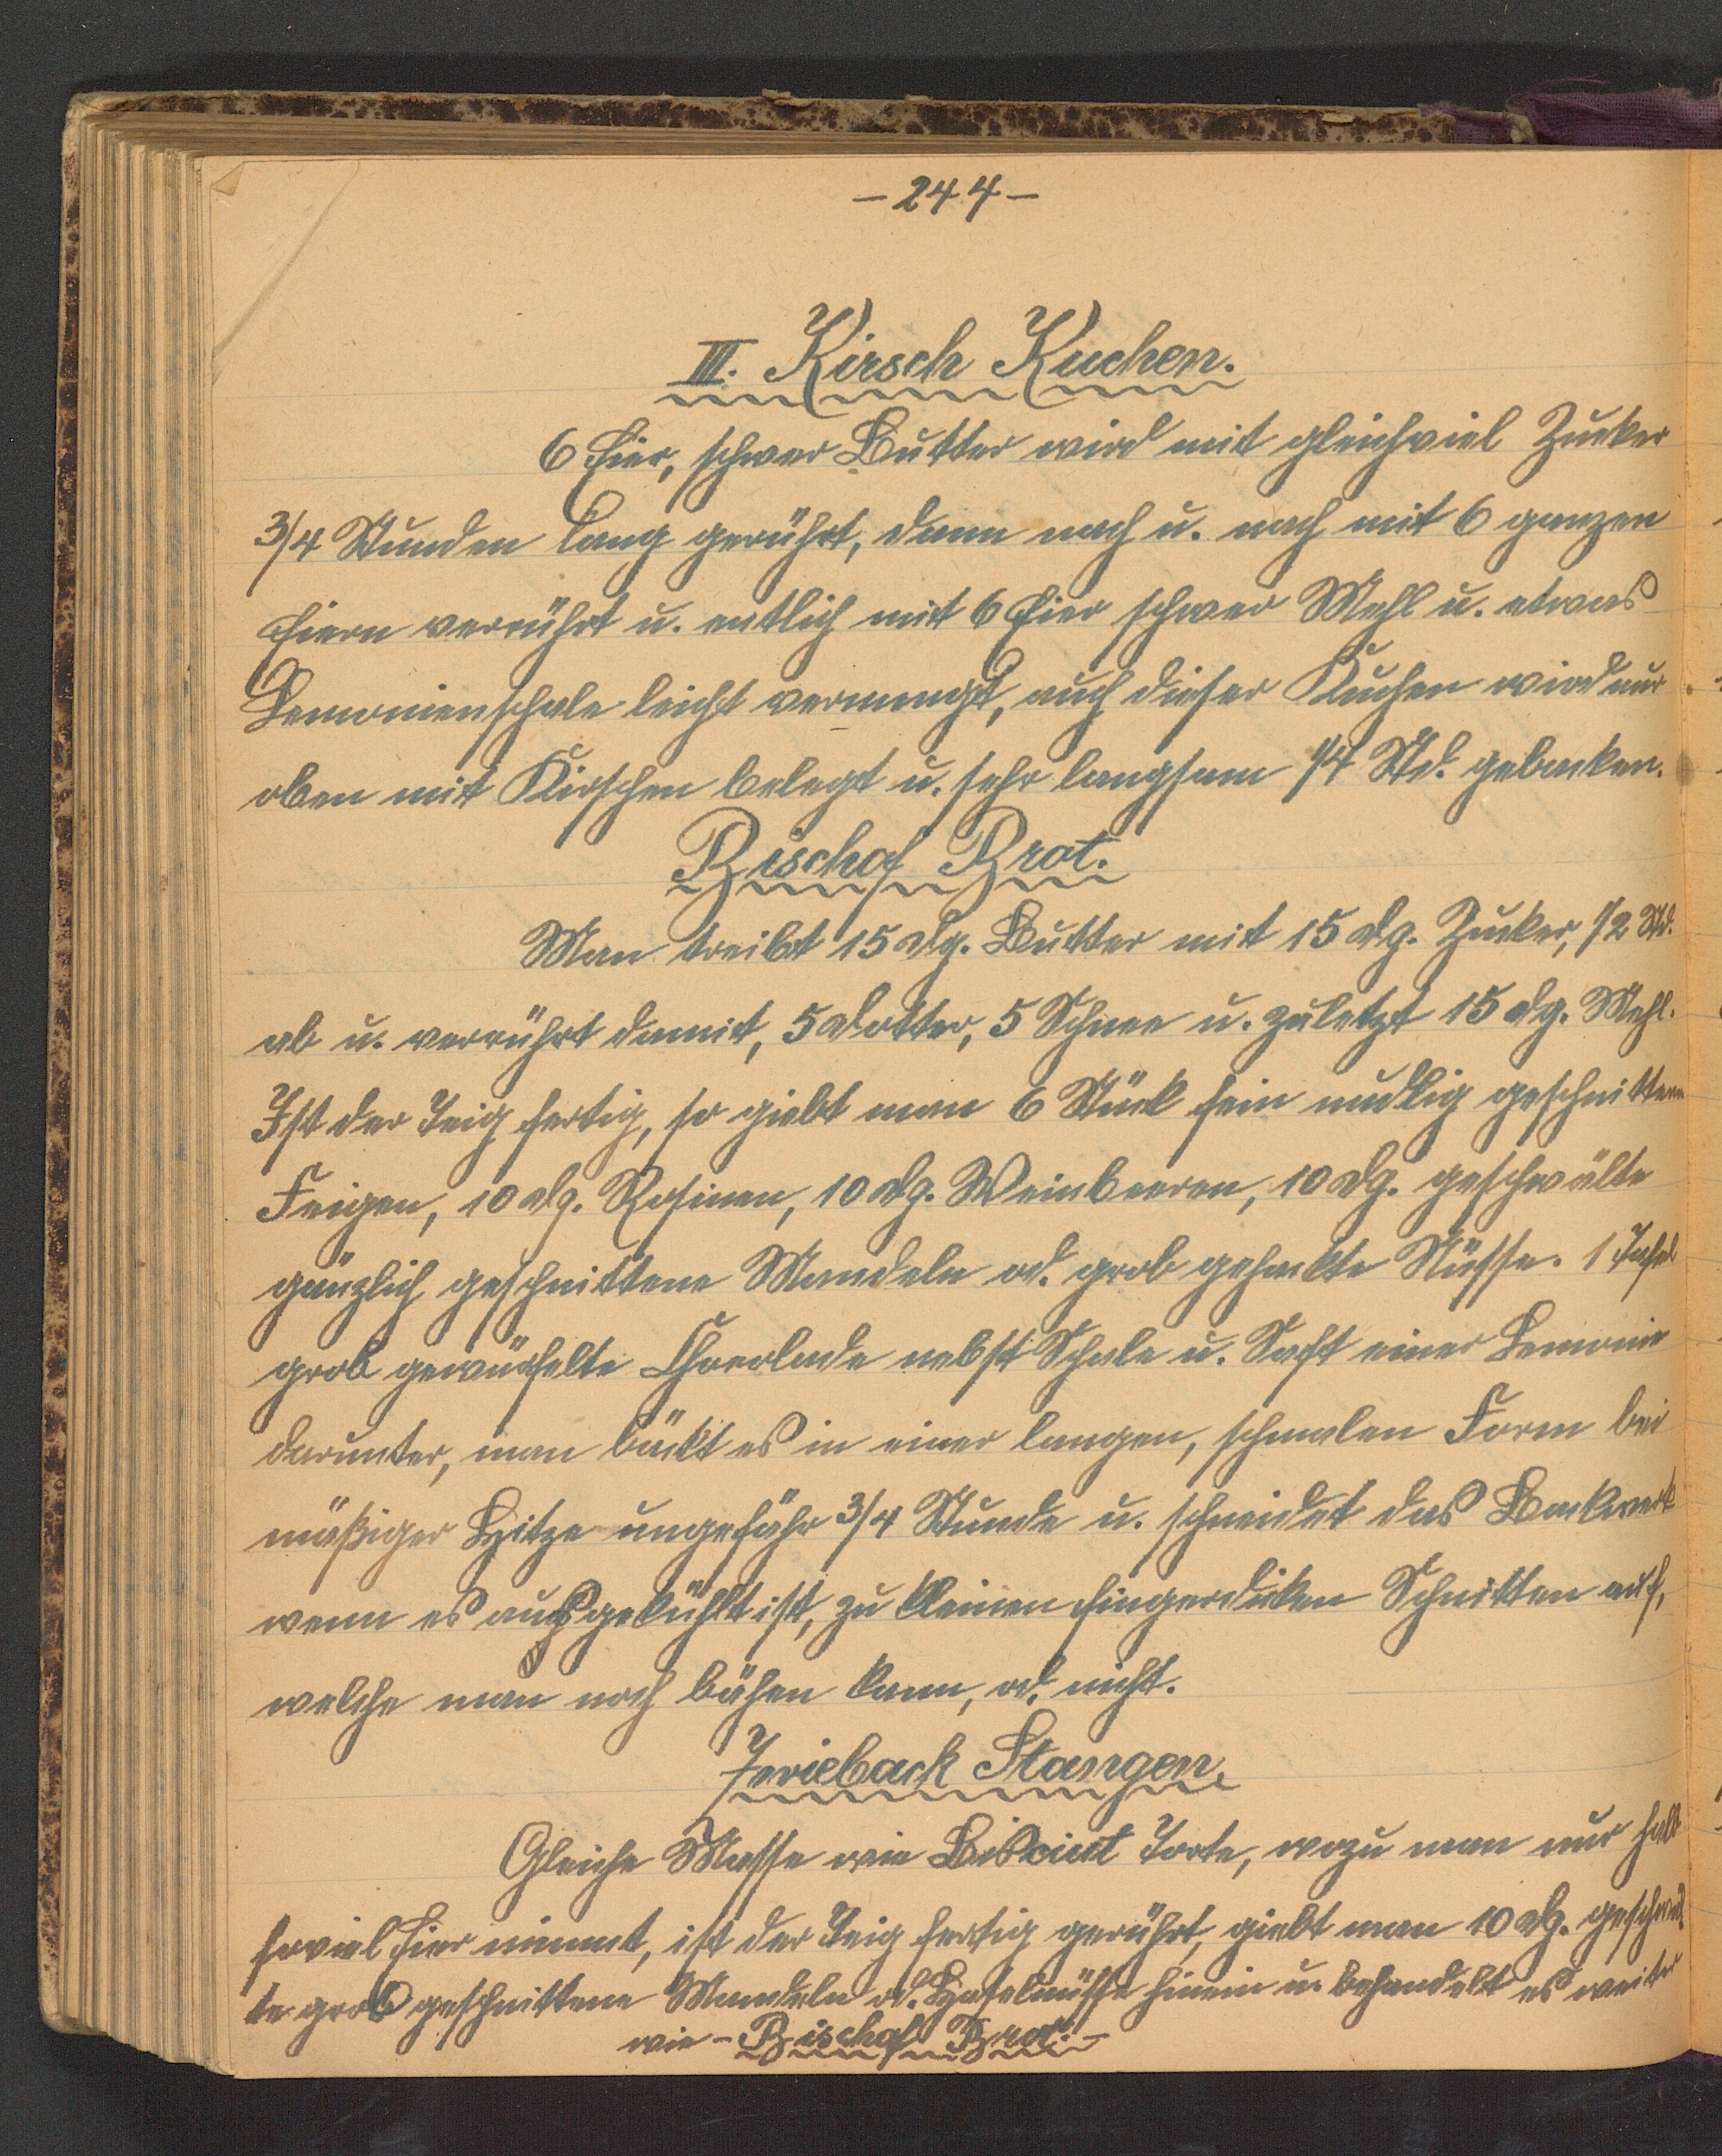 - 244 -
III. Kirsch Kuchen.
6 Eier, schwer Butter wird mit gleichviel Zucker
3/4 Stunden lang gerührt, dann nach u. nach mit 6 ganzen
Eiern verrührt u. entlich mit 6 Eier schwer Mehl u. etwas
Lemonienschale leicht vermengt, auch dieser Kuchen wird nur
oben mit Kirschen belegt u. sehr langsam 1/4 Std. gebacken.
Bischof Brot.
Man treibt 15 dg. Butter mit 15 dg. Zucker, 1/2 Std.
ab u. verrührt damit, 5 Dotter, 5 Schnee u. zuletzt 15 dg. Mehl.
Ist der Teig fertig, so giebt man 6 Stück fein nudlig geschnittene
Feigen, 10 dg. Rosinen, 10 dg. Weinbeeren, 10 dg. geschwälte
gänzlich geschnittene Mandeln od. grob gehackte Nüsse. 1 Tafel
grob gewürfelte Chocolade nebst Schale u. Saft einer Lemonie
darunter, man bäckt es in einer langen, schmalen Form bei
mäßiger Hitze ungefähr 3/4 Stunde u. schneidet das Backwerk
wenn es ausgekühlt ist, zu kleinen fingerdicken Schnitten auf,
welche man noch bähen kann, od. nicht.
Zwieback Stangen.
Gleiche Masse wie Biscuit Torte, wozu man nur halb
soviel Eier nimmt, ist der Teig fertig gerührt, giebt man 10 dg. geschwäl
te grob geschnittene Mandeln od. Haselnüsse hinein u. behandelt es weiter
wie - Bischof Brot. -